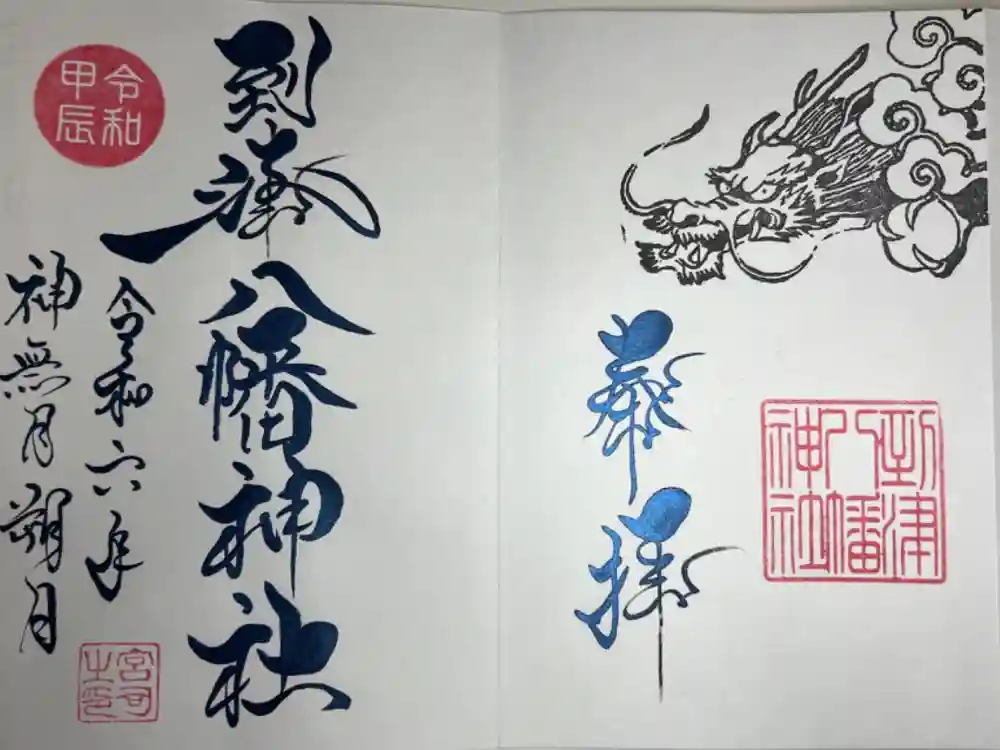 奉拝
到津八幡神社
到津八幡神社
令和甲辰
令和六年
神無月朔月
宮司之印